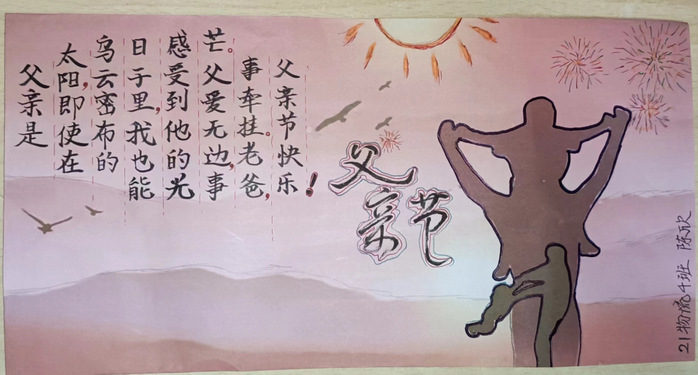 父亲是
太阳,即使在
乌云密布的
日子里,我也能
感受到他的光
芒。父爱无边,事
事牵挂。老爸,
父亲节快乐!
父亲节
21物流4班 陈欣